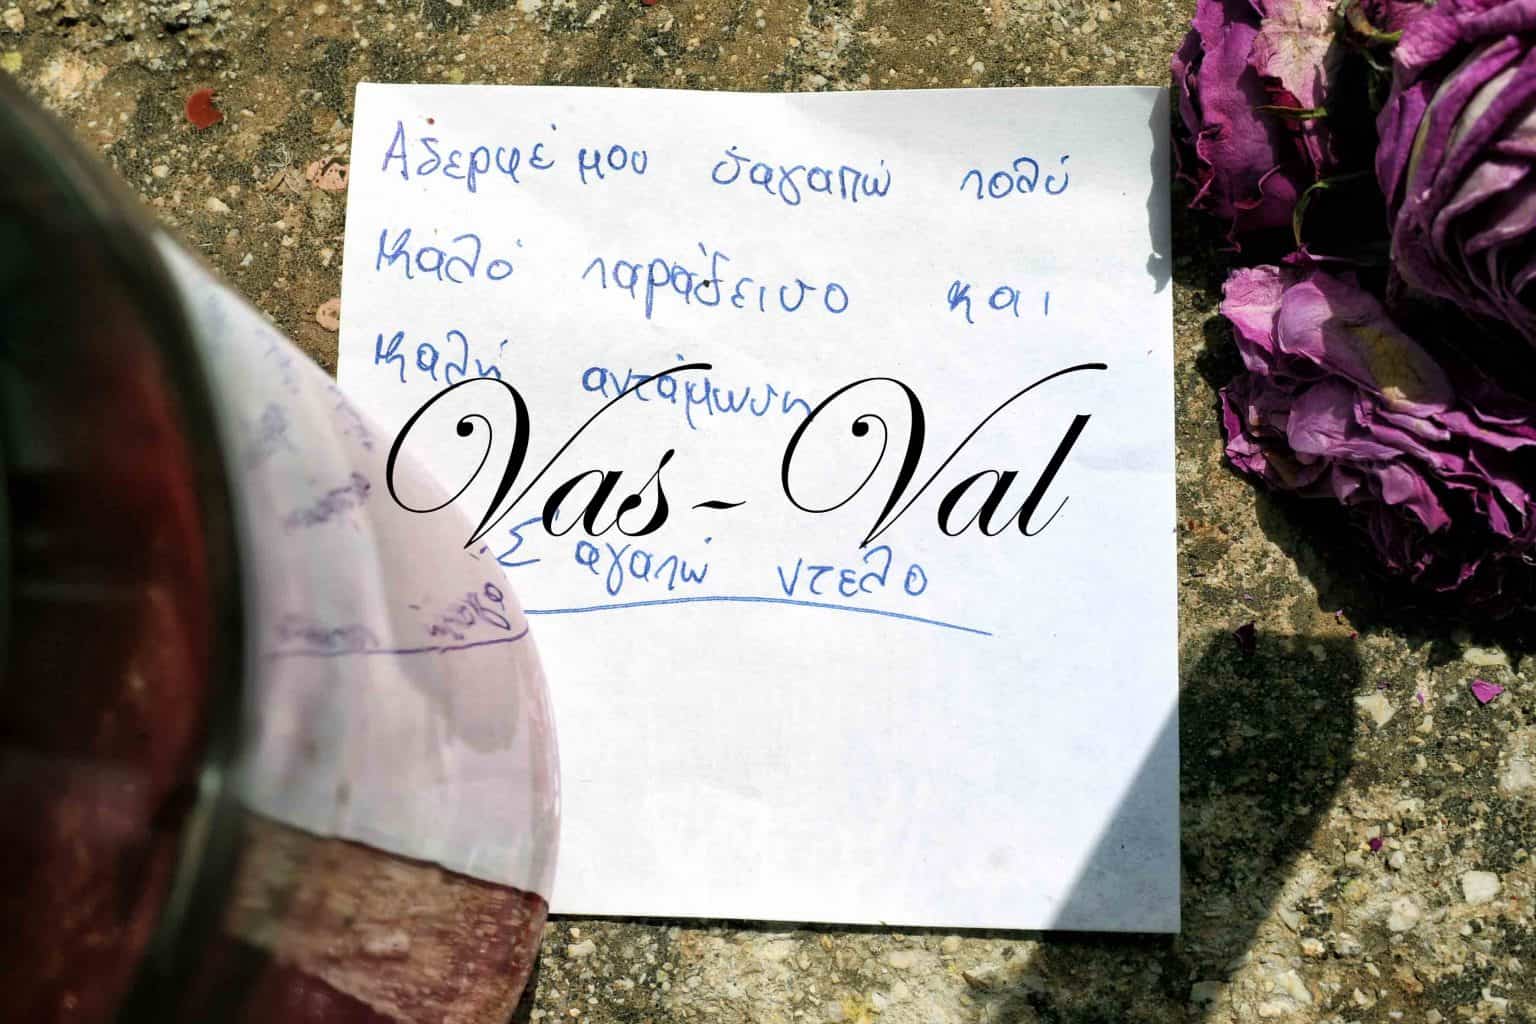 Αδερφέ μου σ'αγαπώ πολύ
Καλό παράδεισο και
Καλή αντάμωση
Vas-Val
Σ αγαπώ ντελο